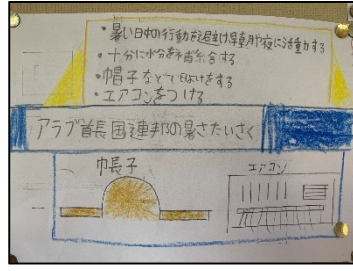 ・暑い日中の行動を避け早朝や夜に活動する
・十分に水分を補給する
・帽子などで日よけをする
・エアコンをつける
アラブ首長国連邦の暑さたいさく
帽子
エアコン